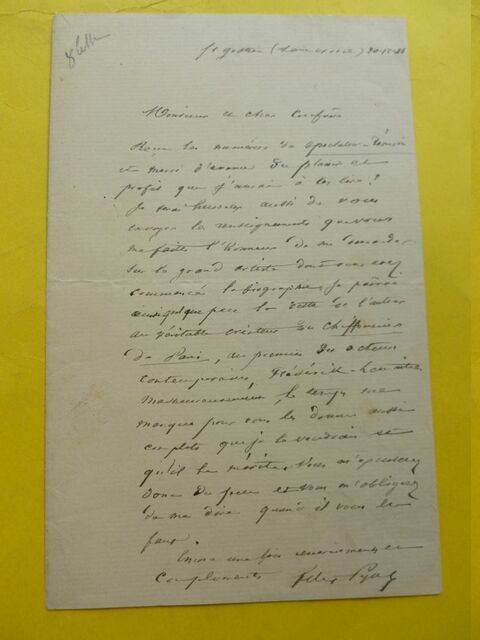 Monsieur et cher Confrère
Reçu les numéros du Spectateur
et merci d'avance du plaisir et
profit que j'aurai à les lire!
Je serai heureux aussi de vous
envoyer les renseignements que vous
me faites l'honneur de me demander
sur le grand artiste dont vous avez
commencé la biographie. Je paierai
ainsi quelque peu la dette de l'auteur
au véritable créateur du Chiffonnier
de Paris, au premier des acteurs
contemporains, Frédérick-Lemaître
Malheureusement, le temps me
manque pour vous les donner aussi
complets que je le voudrais et
qu'il le mérite. Vous m'excuserez
donc du peu et vous m'obligerez
de me dire quand il vous le
faut.
Encore une fois remerciements et
Compliments Felix Pyat